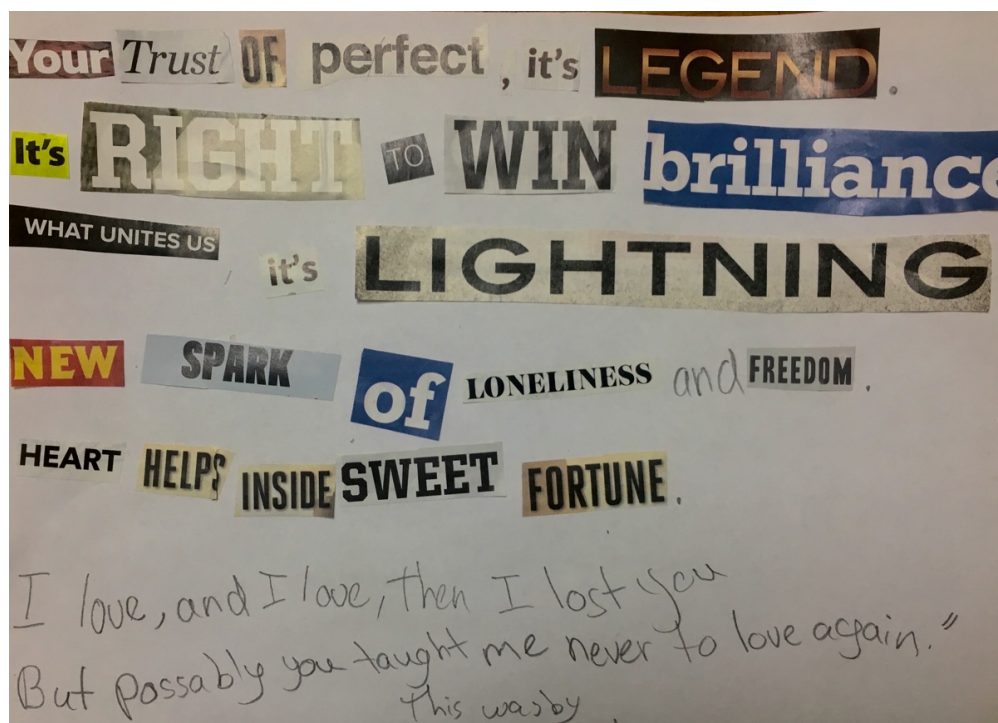 Your Trust OF perfect, it's LEGEND.
It's RIGHT TO WIN brilliance
WHAT UNITES US it's LIGHTNING
NEW SPARK of LONELINESS and FREEDOM.
HEART HELPS INSIDE SWEET FORTUNE.
I love, and I love, then I lost you
But possably you taught me never to love again."
This was by